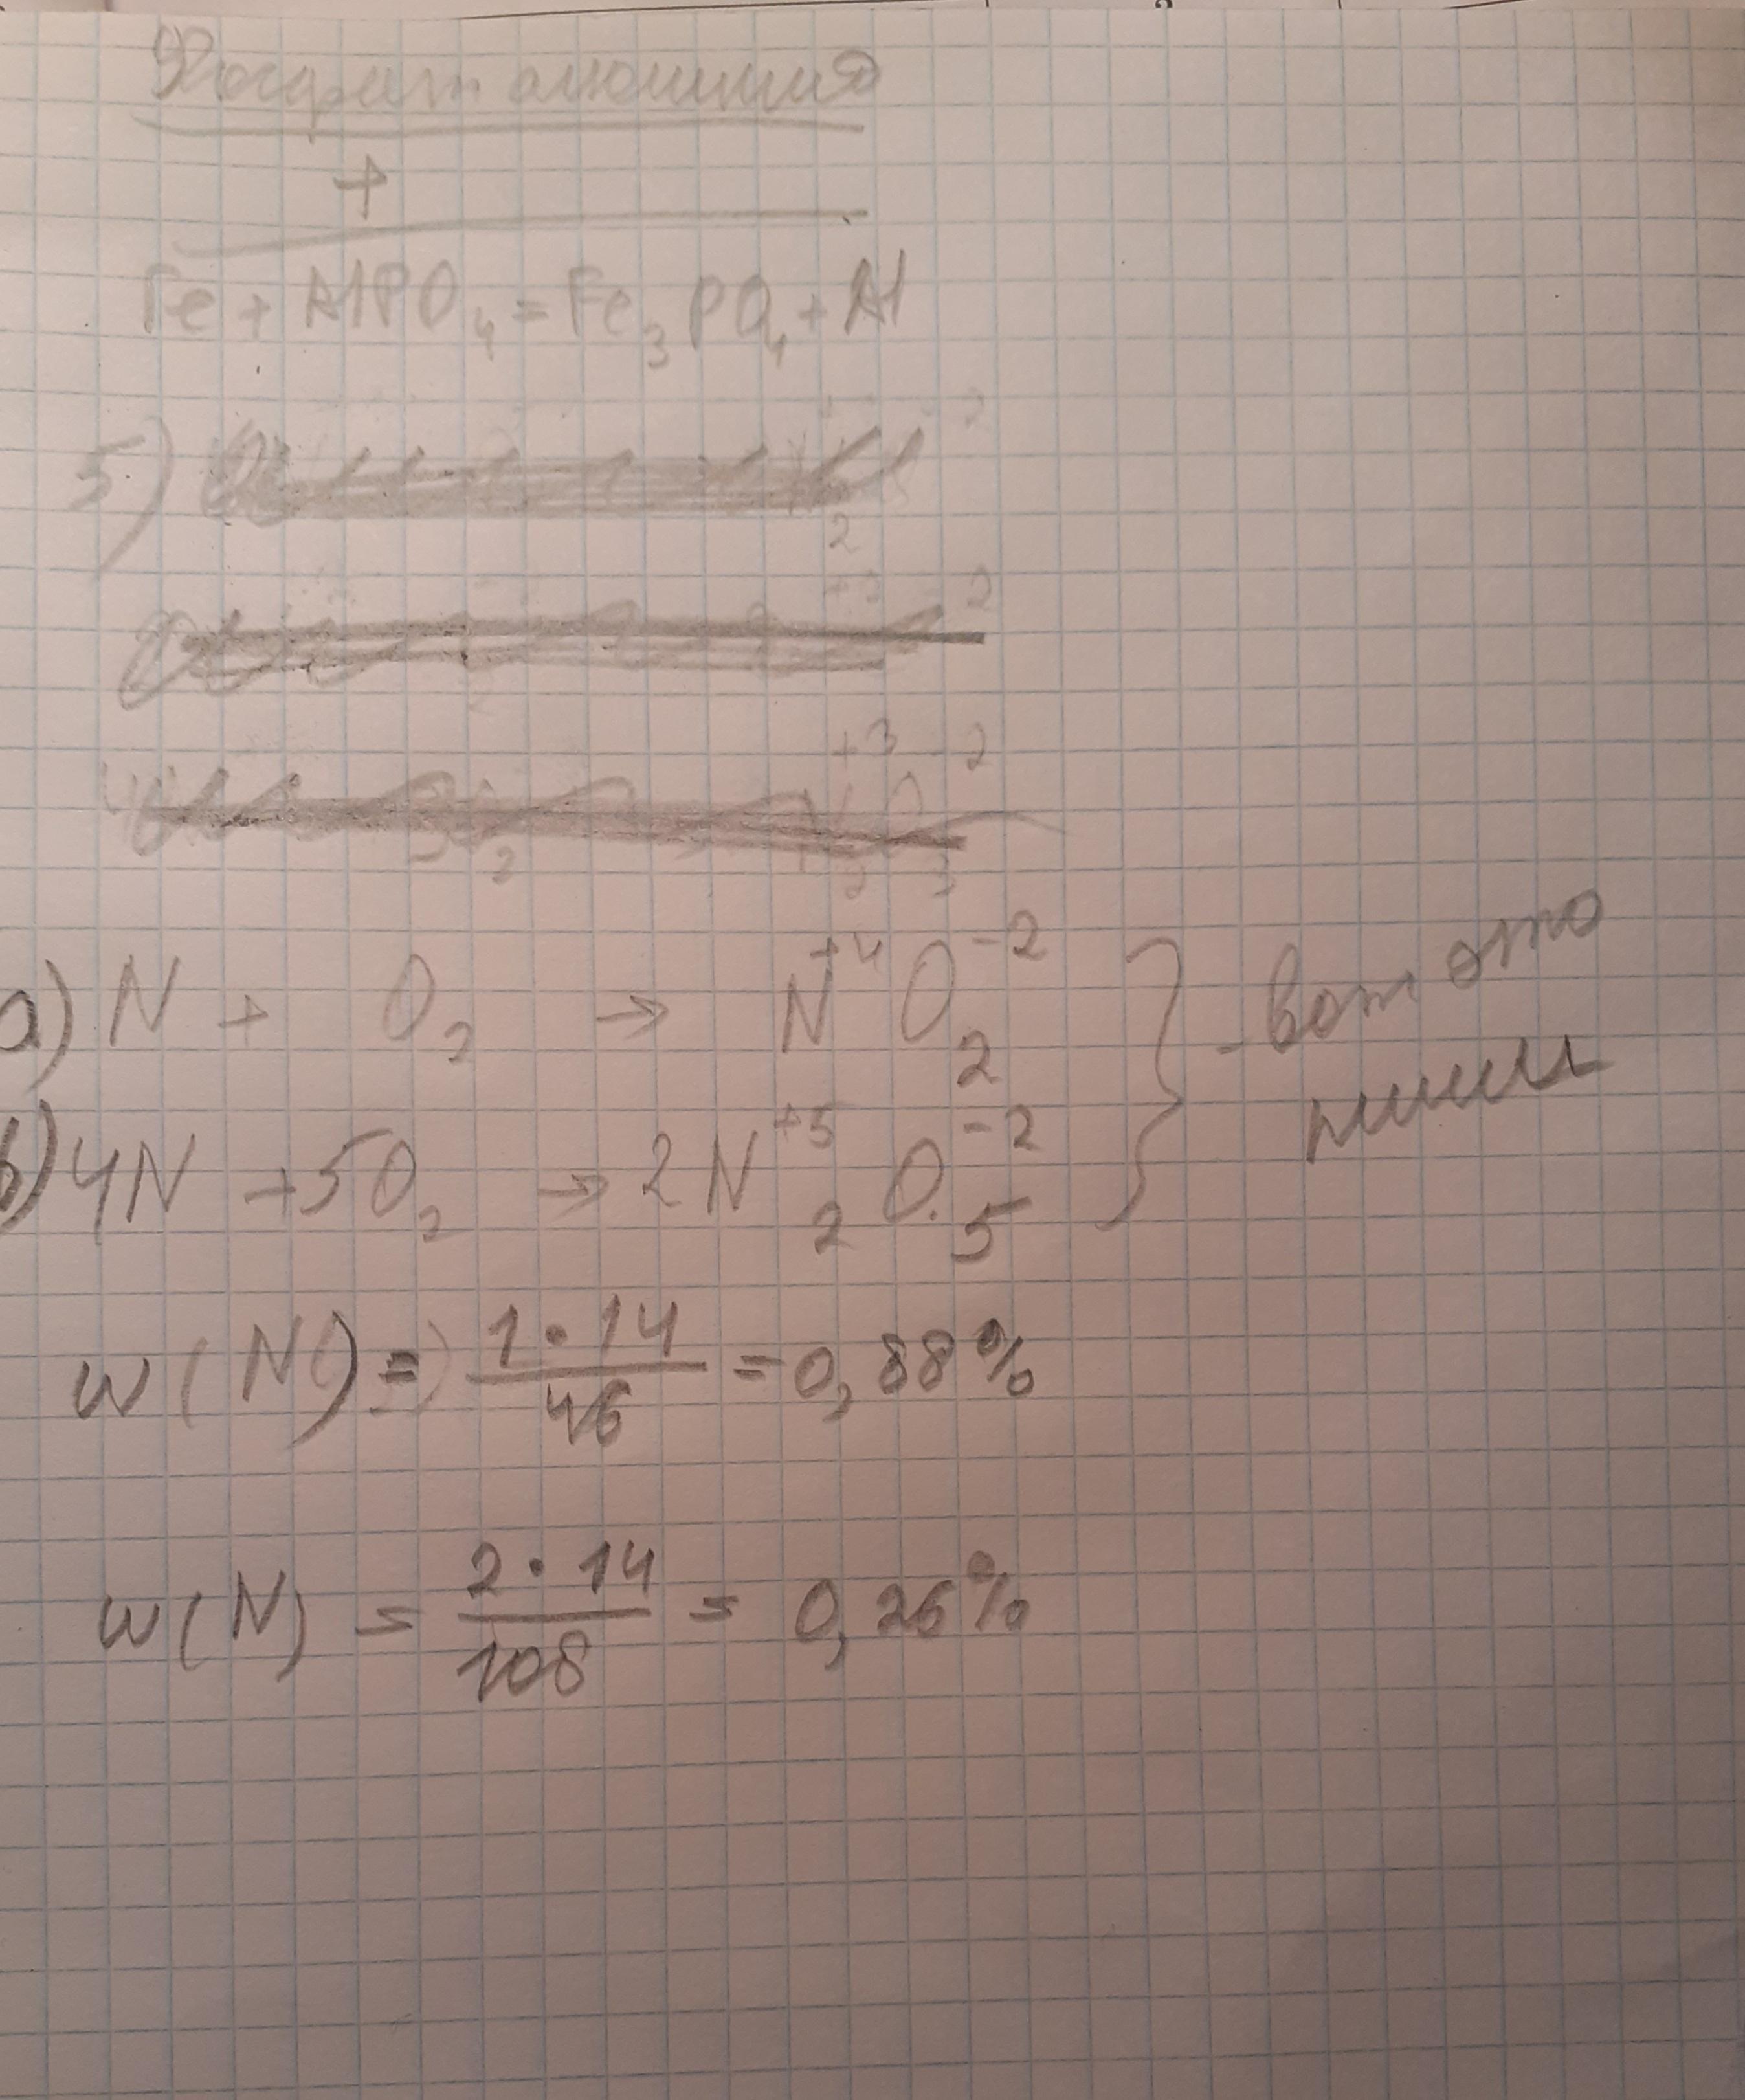 Фосфат алюминия
+
Fe + AlPO₄ = Fe₃PO₄ + Al
5)
a) N + O₂ → N⁺⁴O₂⁻²
b) 4N + 5O₂ → 2N₂⁺⁵O₅⁻²
} - вот это
пиши
w(N) = 1·14/46 = 0,88%
w(N) = 2·14/108 = 0,26%